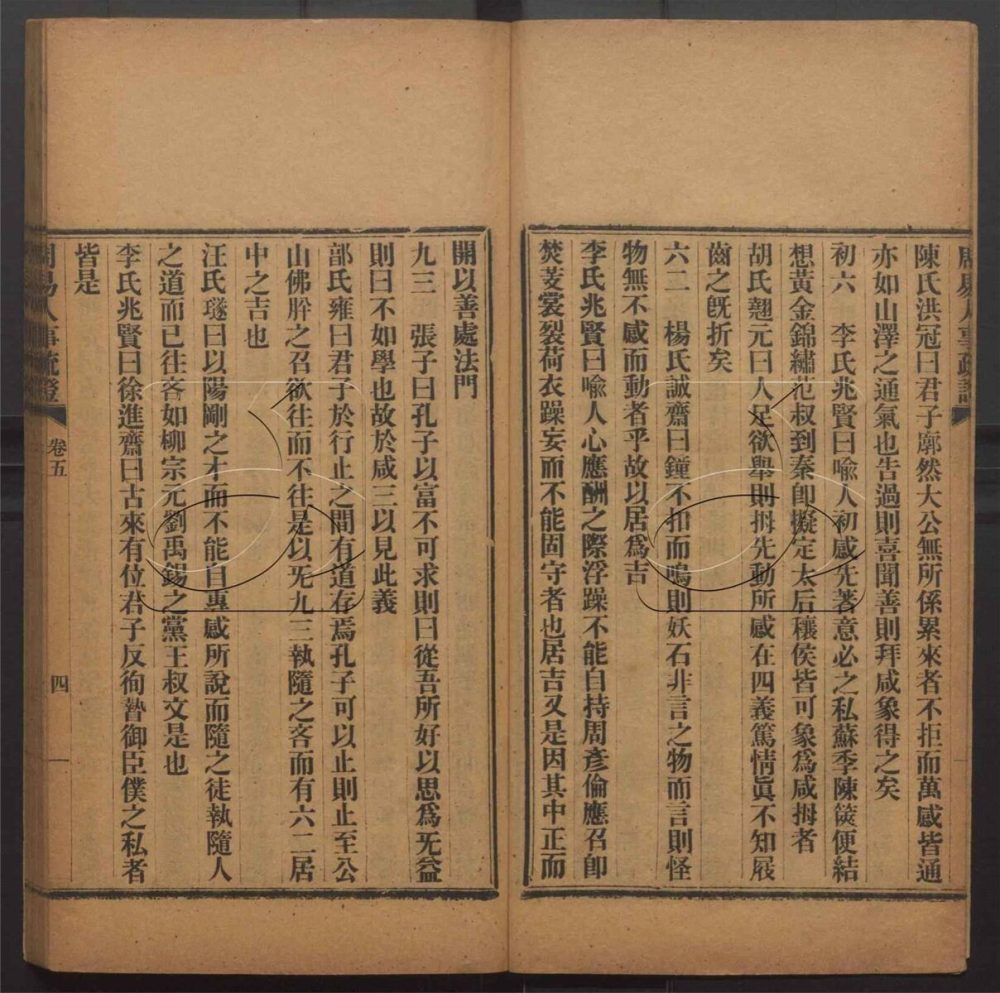 陳氏洪冠曰君子廓然大公無所係累來者不拒而萬感皆通
亦如山澤之通氣也告過則喜聞善則拜咸象得之矣
初六　李氏兆賢曰喩人初感先著意必之私蘇季陳篋便結
想黃金錦繡范叔到秦卽擬定太后穰侯皆可象爲咸拇者
胡氏翹元曰人足欲舉則拇先動所感在四義篤情眞不知屐
齒之旣折矣
六二　楊氏誠齋曰鐘不扣而鳴則妖石非言之物而言則怪
物無不感而動者乎故以居爲吉
李氏兆賢曰喩人心應酬之際浮躁不能自持周彥倫應召卽
焚芰裳裂荷衣躁妄而不能固守者也居吉又是因其中正而
開以善處法門
九三　張子曰孔子以富不可求則曰從吾所好以思爲无益
則曰不如學也故於咸三以見此義
邵氏雍曰君子於行止之間有道存焉孔子可以止則止至公
山佛肸之召欲往而不往是以无九三執隨之吝而有六二居
中之吉也
汪氏璲曰以陽剛之才而不能自專感所說而隨之徒執隨人
之道而已往吝如柳宗元劉禹錫之黨王叔文是也
李氏兆賢曰徐進齋曰古來有位君子反徇暬御臣僕之私者
皆是
周易人事疏證
卷五
四